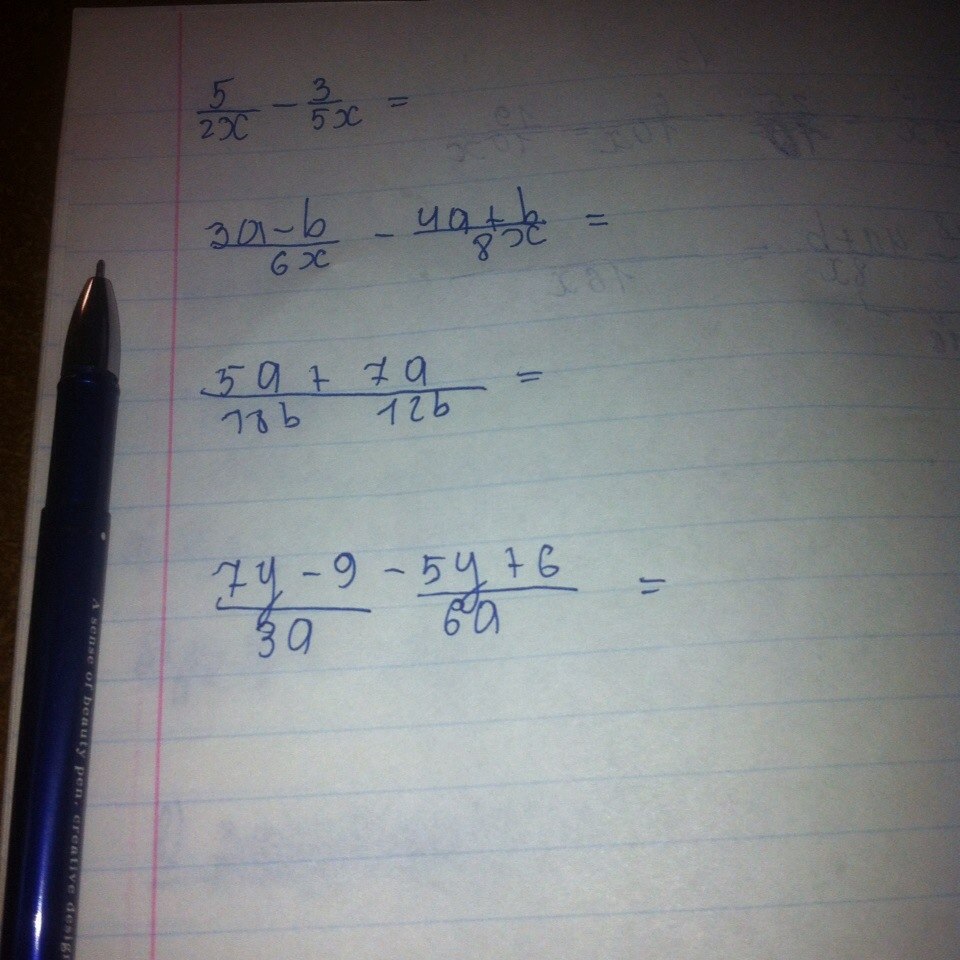 5/2x - 3/5x =
3a-b/6x - 4a+b/8x =
5a + 7a/18b 12b =
7y-9/3a - 5y+6/6a =
A sense of beauty pen. creative design